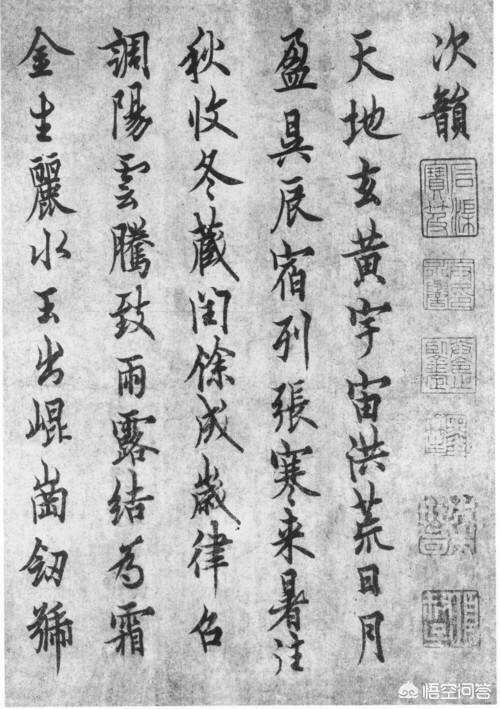 次韻
天地玄黃宇宙洪荒日月
盈昃辰宿列張寒来暑往
秋收冬藏閏餘成歲律召
調陽雲騰致雨露結為霜
金生麗水玉出崐崗釼號
悟空问答